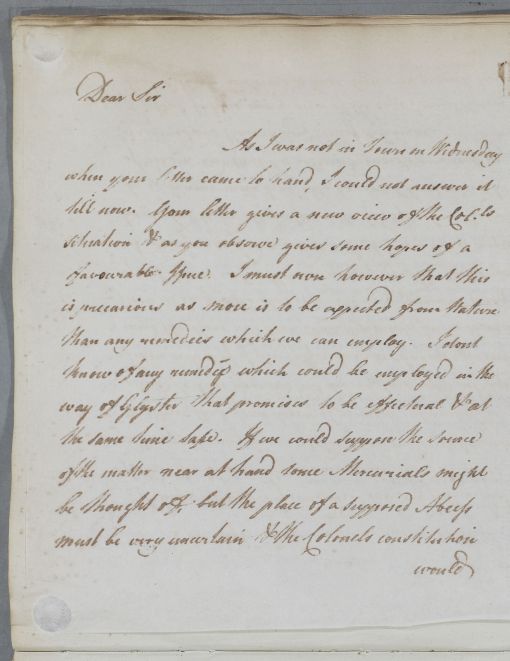 Dear Sir
As I was not in Town on Wednesday
when your letter came to hand, I could not answer it
till now. Your letter gives a new view of the Col.ls
situation & as you observe gives some hopes of a
favourable Issue. I must own however that this
is precarious as more is to be expected from Nature
than any remedies which we can employ. I dont
know of any remedy which could be employed in the
way of Glyster that promises to be effectual & at
the same time safe. If we could suppose the source
of the matter near at hand some Mercurials might
be thought of, but the place of a supposed Abcess
must be very uncertain & the Colonels constitution
would